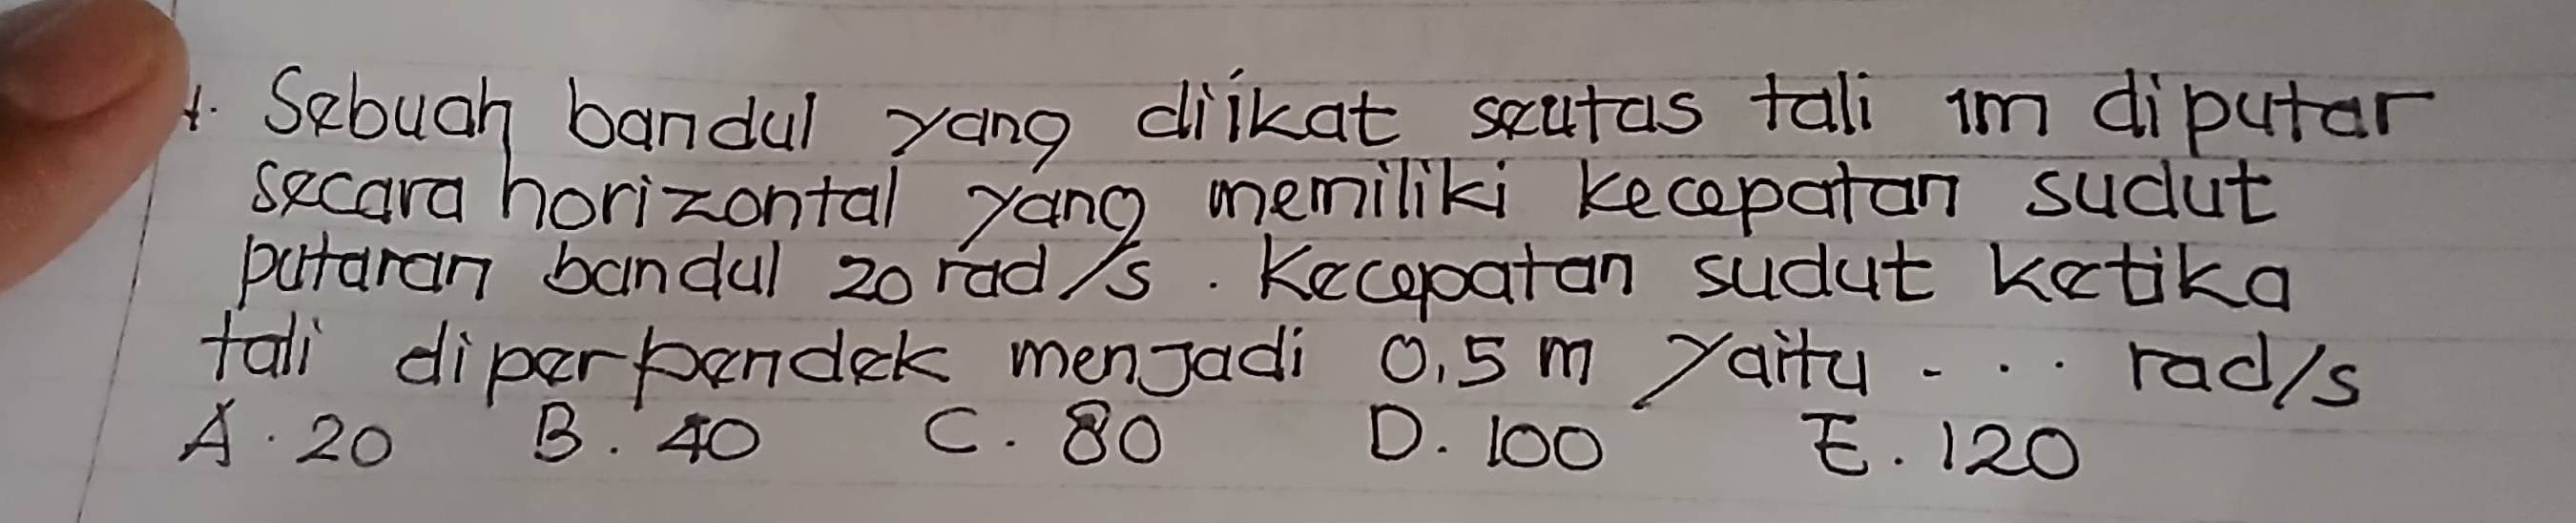 1. Sebuah bandul yang diikat seutas tali 1m diputar
secara horizontal yang memiliki kecepatan sudut
putaran bandul 20 rad/s. Kecepatan sudut ketika
tali diperpendek menjadi 0,5 m yaitu ... rad/s
A. 20 B. 40 C. 80 D. 100 E. 120